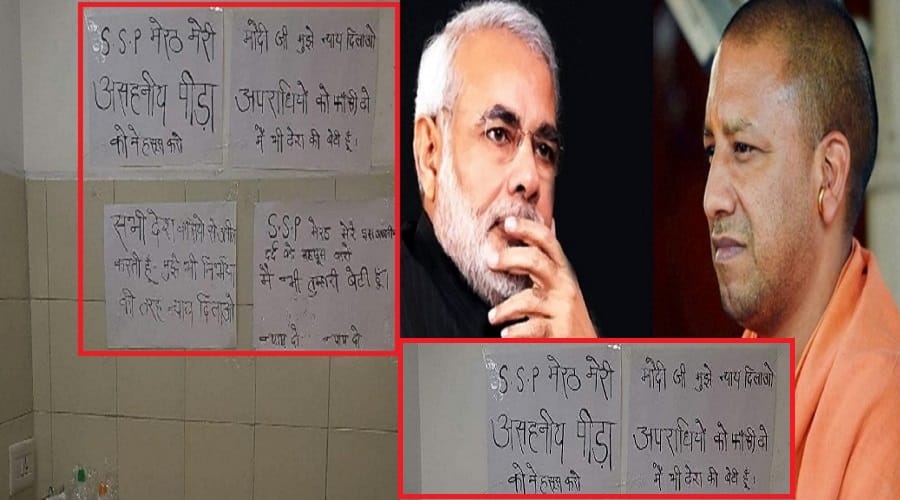 S.S.P मेरठ मेरी
असहनीय पीड़ा
को मेहसूस करो
मोदी जी मुझे न्याय दिलाओ
अपराधियो को फाँसी दो
में भी देश की बेटी हूँ।
सभी देश वासियो से अपील
करती हूँ- मुझे भी निर्भया
की तरह न्याय दिलाओ
S.S.P मेरठ मेरे इस
दर्द को महसूस करो
मै भी तुम्हारी बेटी हूँ।
न्याय दो न्याय दो
S.S.P मेरठ मेरी
असहनीय पीड़ा
को मेहसूस करो
मोदी जी मुझे न्याय दिलाओ
अपराधियो को फाँसी दो
में भी देश की बेटी हूँ।